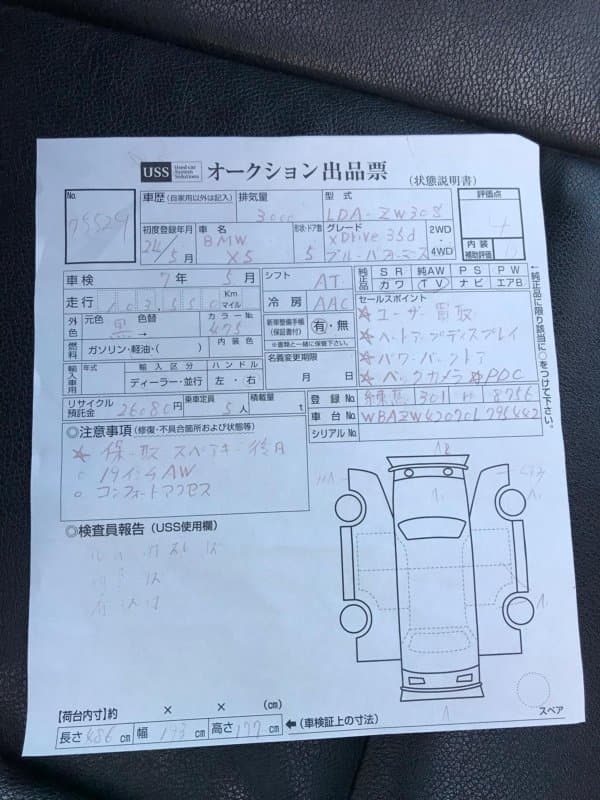 USS Used car System Solutions オークション出品票 (状態説明書)
No. 車歴 (自家用以外は記入) 排気量 3000 型式 LDA-ZW30S 評価点 4
初度登録年月 24/5月 車名 BMW X5 形状・ドア数 5 グレード xDrive 35d ブルーパフォーマンス 2WD・4WD 内装補助評価
車検 7年 5月 シフト AT 純正品 SR 純AW PS PW
走行 Km マイル 冷房 AAC カワ TV ナビ エアB
外色 元色 黒 → 色替 カラーNo 475 新車整備手帳 (保証書付) 有・無 ※書類と一緒に保管下さい。 セールスポイント
☆ユーザー買取
☆ヘッドアップディスプレイ
☆パワーバックドア
☆バックカメラ ☆PDC
←純正品に限り該当に○をつけて下さい。
燃料 ガソリン・軽油・( ) 内装色 名義変更期限 月 日
輸入車用 年式 輸入区分 ディーラー・並行 ハンドル 左・右
リサイクル預託金 26080円 乗車定員 5人 積載量 t 登録No. 301
車台No.
シリアルNo.
◎注意事項 (修復・不具合箇所および状態等)
☆ 保・取 スペアキー 後日
○ 19インチAW
○ コンフォートアクセス
◎検査員報告 (USS使用欄)
スペア
【荷台内寸】約 × × (cm)
長さ 486 cm 幅 cm 高さ 177 cm ← (車検証上の寸法)